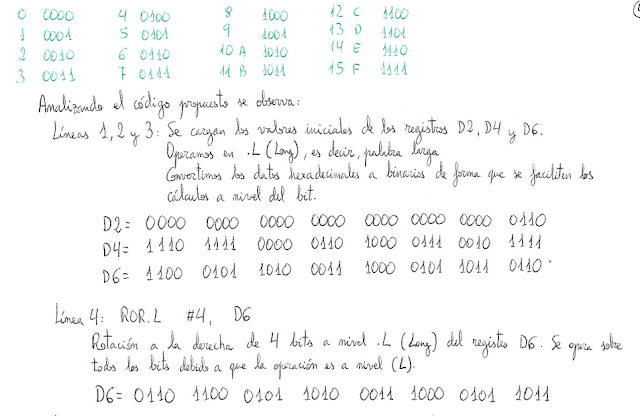 0 0000 4 0100 8 1000 12 C 1100
1 0001 5 0101 9 1001 13 D 1101
2 0010 6 0110 10 A 1010 14 E 1110
3 0011 7 0111 11 B 1011 15 F 1111
Analizando el código propuesto se observa:
Líneas 1, 2 y 3: Se cargan los valores iniciales de los registros D2, D4 y D6.
Operamos en .L (Long), es decir, palabra larga
Convertimos los datos hexadecimales a binarios de forma que se faciliten los
cálculos a nivel del bit.
D2= 0000 0000 0000 0000 0000 0000 0000 0110
D4= 1110 1111 0000 0110 1000 0111 0010 1111
D6= 1100 0101 1010 0011 1000 0101 1011 0110.
Línea 4: ROR.L #4, D6
Rotación a la derecha de 4 bits a nivel .L (Long) del registro D6. Se opera sobre
todos los bits debido a que la operación es a nivel (L).
D6= 0110 1100 0101 1010 0011 1000 0101 1011